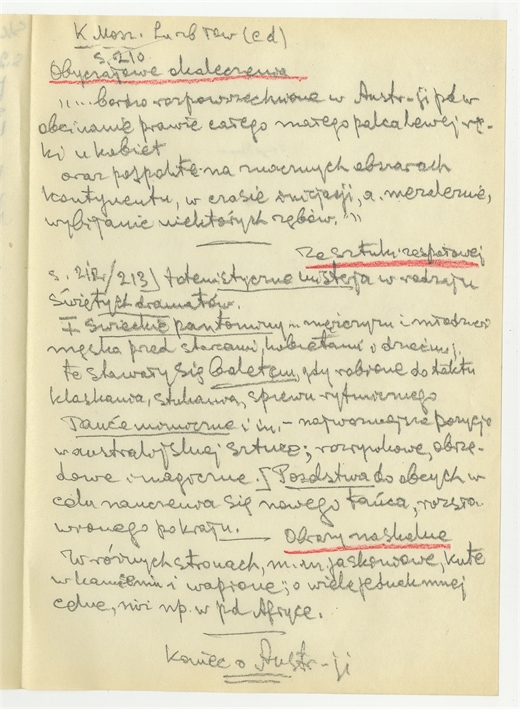 K Mosz. Lud Trow (cd)
s. 210
Obyczajowe okaleczenia
"... bardzo rozpowszechnione w Austr-ji pd w
obcinanie prawie całego małego palca lewej rę-
ki u kobiet
oraz pospolite na znacznych obszarach
kontynentu, w czasie inicjacji, a. niezależnie,
wybijanie niektórych zębów."
Ze sztuki zespołowej
s. 212/213] totemistyczne misterja w rodzaju
świętych dramatów.
I świeckie pantominy mężczyzn i młodzieży
męska przed starcami, kobietami i dziećmi,
te stawały się baletem, gdy robione do taktu
klaskania, stukania, śpiewu rytmicznego
Tańce mimiczne i in. - najważniejsza pozycja
w australijskiej sztuce; rozrywkowe, obrzę-
dowe i magiczne. ∫ Poselstwa do obcych w
celu nauczenia się nowego tańca, rozsła-
wionego po kraju.
Obrazy naskalne
W różnych stronach, m. in. jaskiniowe, kute
w kamieniu i wapienne; o wiele jednak mniej
celne, niż np. w pd Afryce.
Koniec o Austr-ji